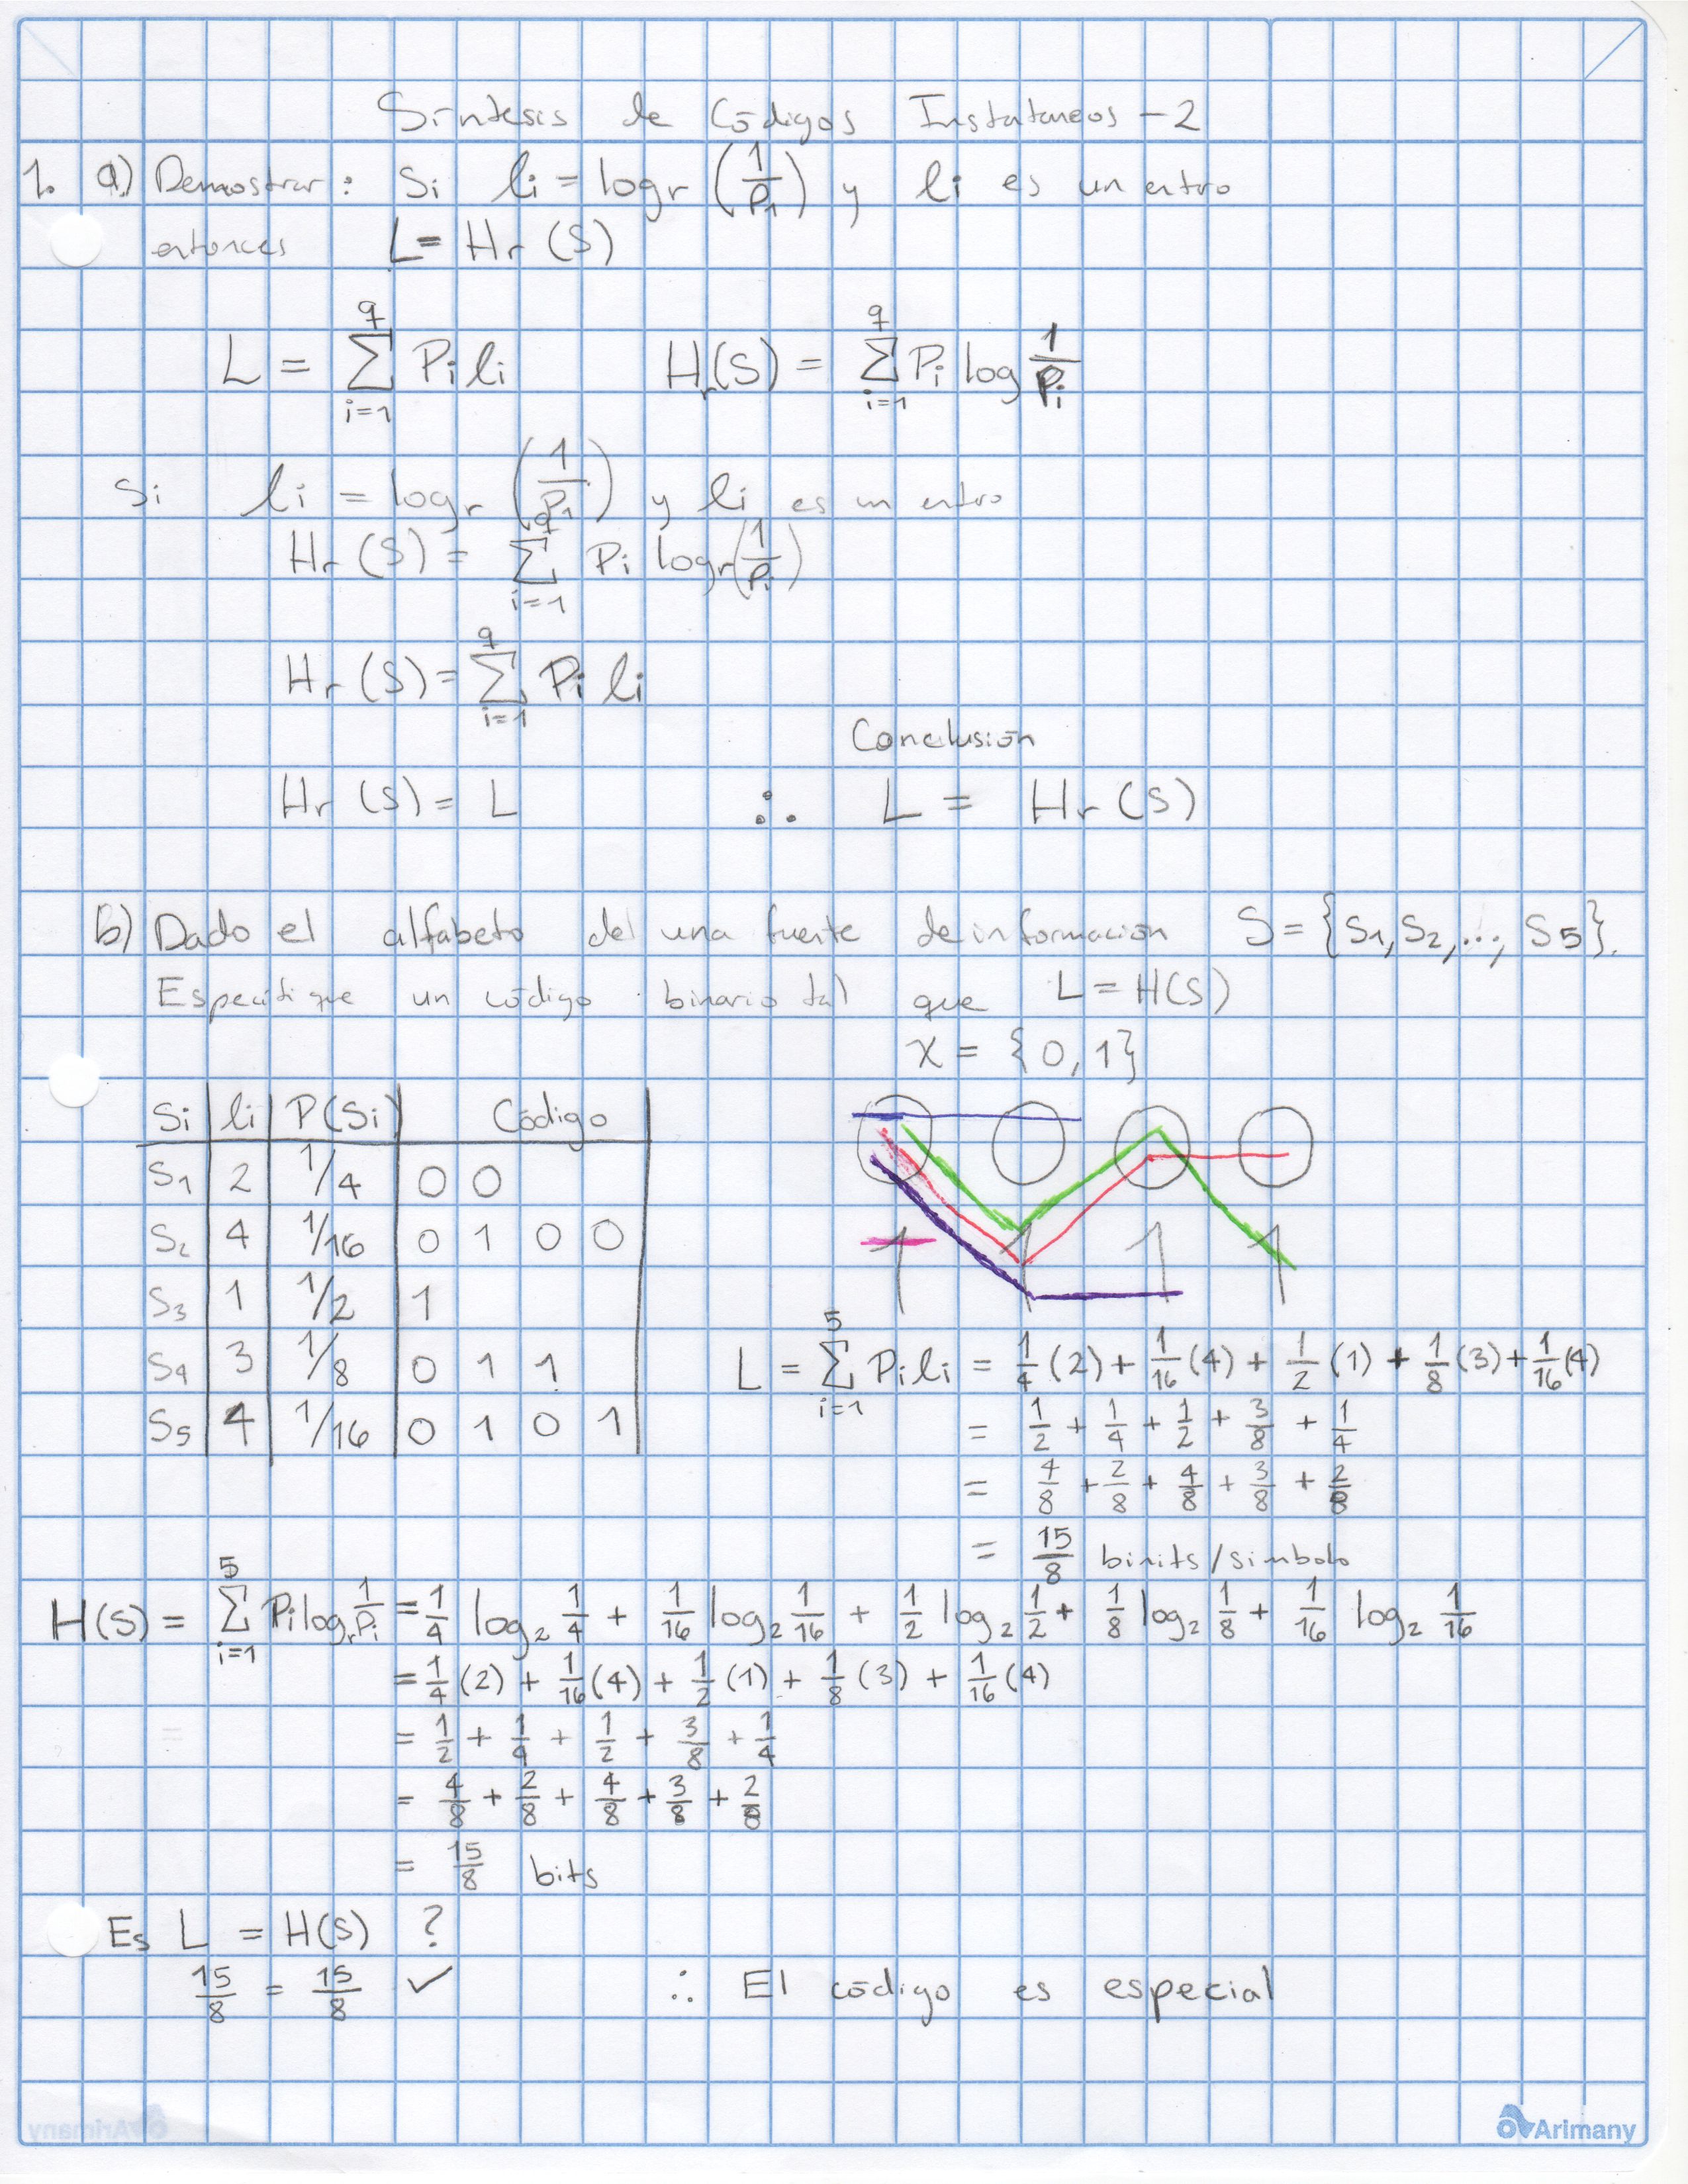 Síntesis de Códigos Instataneos - 2
1. a) Demostrar: Si li = logr (1/P1) y li es un entro
entonces L = Hr (S)
L = Σ_{i=1}^{q} Pi li    Hr(S) = Σ_{i=1}^{q} Pi log 1/Pi
Si li = logr (1/P1) y li es un entro
Hr (S) = Σ_{i=1}^{q} Pi logr (1/Pi)
Hr (S) = Σ_{i=1}^{q} Pi li
Conclusión
Hr (S) = L    ∴ L = Hr (S)
b) Dado el alfabeto del una fuente de información S = {S1, S2, ..., S5}.
Especifique un código binario tal que L = H(S)
X = {0, 1}
Si li P(Si) Código
S1 2 1/4 0 0
S2 4 1/16 0 1 0 0
S3 1 1/2 1
S4 3 1/8 0 1 1
S5 4 1/16 0 1 0 1
0 0 0 0
1 1 1 1
L = Σ_{i=1}^{5} Pi li = 1/4 (2) + 1/16 (4) + 1/2 (1) + 1/8 (3) + 1/16 (4)
= 1/2 + 1/4 + 1/2 + 3/8 + 1/4
= 4/8 + 2/8 + 4/8 + 3/8 + 2/8
= 15/8 binits/simbolo
H(S) = Σ_{i=1}^{5} Pi logr 1/Pi = 1/4 log2 1/4 + 1/16 log2 1/16 + 1/2 log2 1/2 + 1/8 log2 1/8 + 1/16 log2 1/16
= 1/4 (2) + 1/16 (4) + 1/2 (1) + 1/8 (3) + 1/16 (4)
= 1/2 + 1/4 + 1/2 + 3/8 + 1/4
= 4/8 + 2/8 + 4/8 + 3/8 + 2/8
= 15/8 bits
Es L = H(S) ?
15/8 = 15/8 ✓    ∴ El código es especial
Arimany